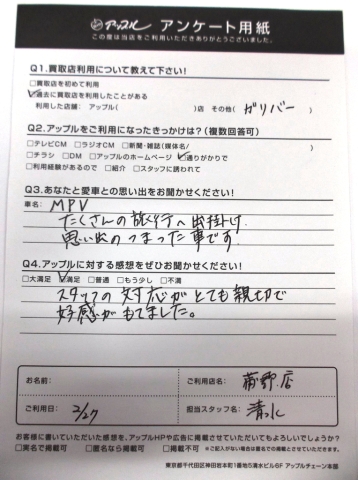 アップル アンケート用紙
この度は当店をご利用いただきありがとうございました。
Q1.買取店利用について教えて下さい!
□買取店を初めて利用
☑過去に買取店を利用したことがある
利用した店舗: アップル( )店 その他( ガリバー )
Q2.アップルをご利用になったきっかけは?(複数回答可)
□テレビCM □ラジオCM □新聞・雑誌(媒体名/ )
□チラシ □DM □アップルのホームページ ☑通りがかりで
□利用経験があるので □紹介 □スタッフに誘われて
Q3.あなたと愛車との思い出をお聞かせください!
車名: MPV
たくさんの旅行へ出掛け
思い出のつまった車です!
Q4.アップルに対する感想をぜひお聞かせください!
□大満足 ☑満足 □普通 □もう少し □不満
スタッフの対応がとても親切で
好感がもてました。
お名前:
ご利用店名: 店
ご利用日: 2/27
担当スタッフ名: 清水
お客様に書いていただいた感想を、アップルHPや広告に掲載させていただいてもよろしいでしょうか?
□実名で掲載可 □匿名なら掲載可 □掲載不可 ※ご記入がない場合は匿名での掲載とさせていただきます。
東京都千代田区神田岩本町1番地5清水ビル6F アップルチェーン本部